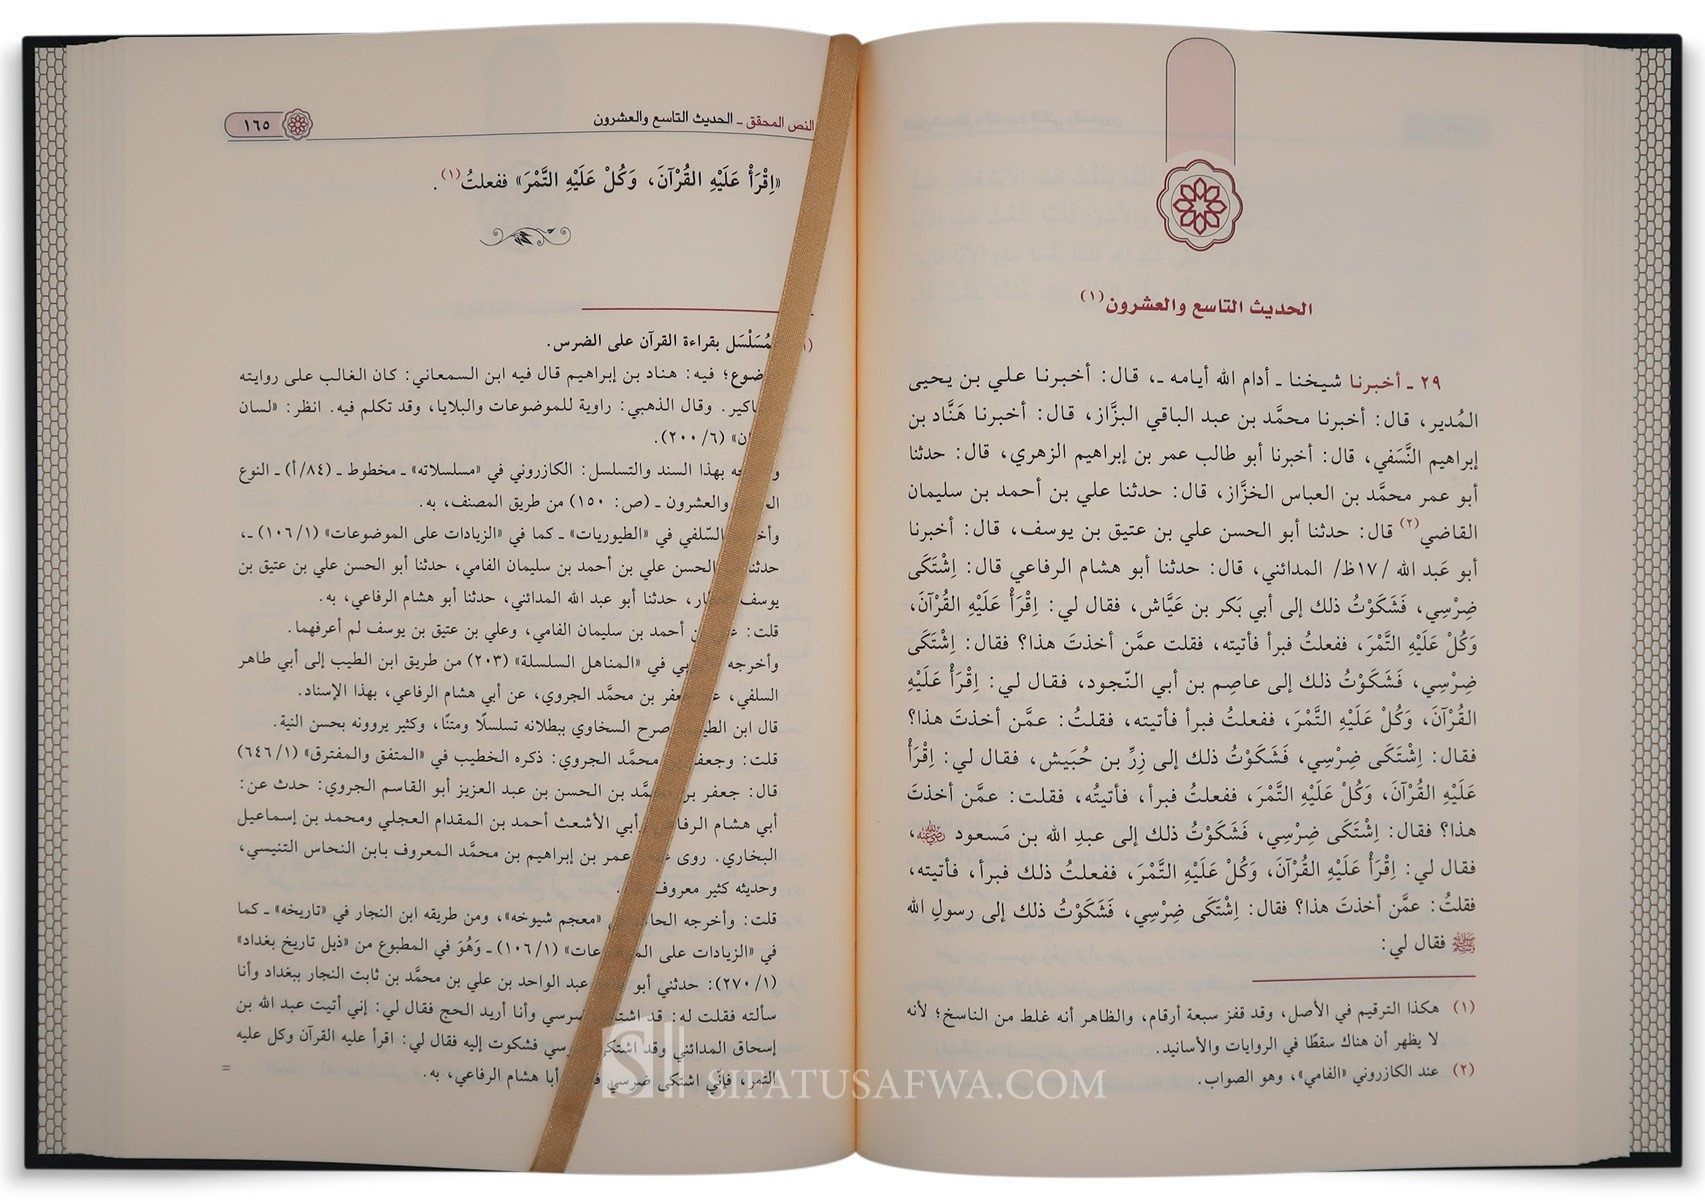 الحديث التاسع والعشرون(١)
٢٩ ـ أخبرنا شيخنا ـ أدام الله أيامه ـ، قال: أخبرنا علي بن يحيى
المُدير، قال: أخبرنا محمَّد بن عبد الباقي البزَّاز، قال: أخبرنا هَنَّاد بن
إبراهيم النَّسَفي، قال: أخبرنا أبو طالب عمر بن إبراهيم الزهري، قال: حدثنا
أبو عمر محمَّد بن العباس الخزَّاز، قال: حدثنا علي بن أحمد بن سليمان
القاضي(٢) قال: حدثنا أبو الحسن علي بن عتيق بن يوسف، قال: أخبرنا
أبو عَبد الله /١٧ظ/ المدائني، قال: حدثنا أبو هشام الرفاعي قال: اِشْتَكَى
ضِرْسِي، فَشَكَوْتُ ذلك إلى أبي بَكر بن عَيَّاش، فقال لي: اِقْرَأْ عَلَيْهِ القُرْآنَ،
وَكُلْ عَلَيْهِ التَّمْرَ، ففعلتُ فبرأ فأتيته، فقلت عمَّن أخذتَ هذا؟ فقال: اِشْتَكَى
ضِرْسِي، فَشَكَوْتُ ذلك إلى عاصِم بن أبي النّجود، فقال لي: اِقْرَأْ عَلَيْهِ
القُرْآنَ، وَكُلْ عَلَيْهِ التَّمْرَ، ففعلتُ فبرأ فأتيته، فقلتُ: عمَّن أخذتَ هذا؟
فقال: اِشْتَكَى ضِرْسِي، فَشَكَوْتُ ذلك إلى زِرِّ بن حُبَيش، فقال لي: اِقْرَأْ
عَلَيْهِ القُرْآنَ، وَكُلْ عَلَيْهِ التَّمْرَ، ففعلتُ فبرأ، فأتيتُه، فقلت: عمَّن أخذتَ
هذا؟ فقال: اِشْتَكَى ضِرْسِي، فَشَكَوْتُ ذلك إلى عبدِ الله بن مَسعود ﵁،
فقال لي: اِقْرَأْ عَلَيْهِ القُرْآنَ، وَكُلْ عَلَيْهِ التَّمْرَ، ففعلتُ ذلك فبرأ، فأتيته،
فقلتُ: عمَّن أخذتَ هذا؟ فقال: اِشْتَكَى ضِرْسِي، فَشَكَوْتُ ذلك إلى رسولِ الله
ﷺ فقال لي:
(١) هكذا الترقيم في الأصل، وقد قفز سبعة أرقام، والظاهر أنه غلط من الناسخ؛ لأنه
لا يظهر أن هناك سقطًا في الروايات والأسانيد.
(٢) عند الكازروني «الفامي»، وهو الصواب.
النص المحقق ـ الحديث التاسع والعشرون ١٦٥
«اِقْرَأْ عَلَيْهِ القُرْآنَ، وَكُلْ عَلَيْهِ التَّمْرَ» ففعلتُ(١).
مُسَلْسَل بقراءة القرآن على الضرس.
فيه: هناد بن إبراهيم قال فيه ابن السمعاني: كان الغالب على روايته
وقال الذهبي: راوية للموضوعات والبلايا، وقد تكلم فيه. انظر: «لسان
(٦/ ٢٠٠).
بهذا السند والتسلسل: الكازروني في «مسلسلاته» ـ مخطوط ـ (٨٤/أ) ـ النوع
والعشرون ـ (ص: ١٥٠) من طريق المصنف، به.
السّلفي في «الطيوريات» ـ كما في «الزيادات على الموضوعات» (١/ ١٠٦) ـ،
حدثنا الحسن علي بن أحمد بن سليمان الفامي، حدثنا أبو الحسن علي بن عتيق بن
يوسف حدثنا أبو عبد الله المدائني، حدثنا أبو هشام الرفاعي، به.
قلت: بن أحمد بن سليمان الفامي، وعلي بن عتيق بن يوسف لم أعرفهما.
وأخرجه في «المناهل السلسة» (٢٠٣) من طريق ابن الطيب إلى أبي طاهر
السلفي، جعفر بن محمَّد الجروي، عن أبي هشام الرفاعي، بهذا الإسناد.
قال ابن صرح السخاوي ببطلانه تسلسلًا ومتنًا، وكثير يروونه بحسن النية.
قلت: وجعفر محمَّد الجروي: ذكره الخطيب في «المتفق والمفترق» (١/ ٦٤٦)
قال: جعفر بن محمَّد بن الحسن بن عبد العزيز أبو القاسم الجروي: حدث عن:
أبي هشام الرفاعي وأبي الأشعث أحمد بن المقدام العجلي ومحمد بن إسماعيل
البخاري. روى عمر بن إبراهيم بن محمَّد المعروف بابن النحاس التنيسي،
وحديثه كثير معروف
قلت: وأخرجه «معجم شيوخه»، ومن طريقه ابن النجار في «تاريخه» ـ كما
في «الزيادات على (١/ ١٠٦) ـ وَهُوَ في المطبوع من «ذيل تاريخ بغداد»
(١/ ٢٧٠): حدثني أبو عبد الواحد بن علي بن محمَّد بن ثابت النجار ببغداد وأنا
سألته فقلت له: قد ضرسي وأنا أريد الحج فقال لي: إني أتيت عبد الله بن
إسحاق المدائني وقد فشكوت إليه فقال لي: اقرأ عليه القرآن وكل عليه
التمر، فإنّي اشتكى ضرسي أبا هشام الرفاعي، به.
=
SIFATUSAFWA.COM